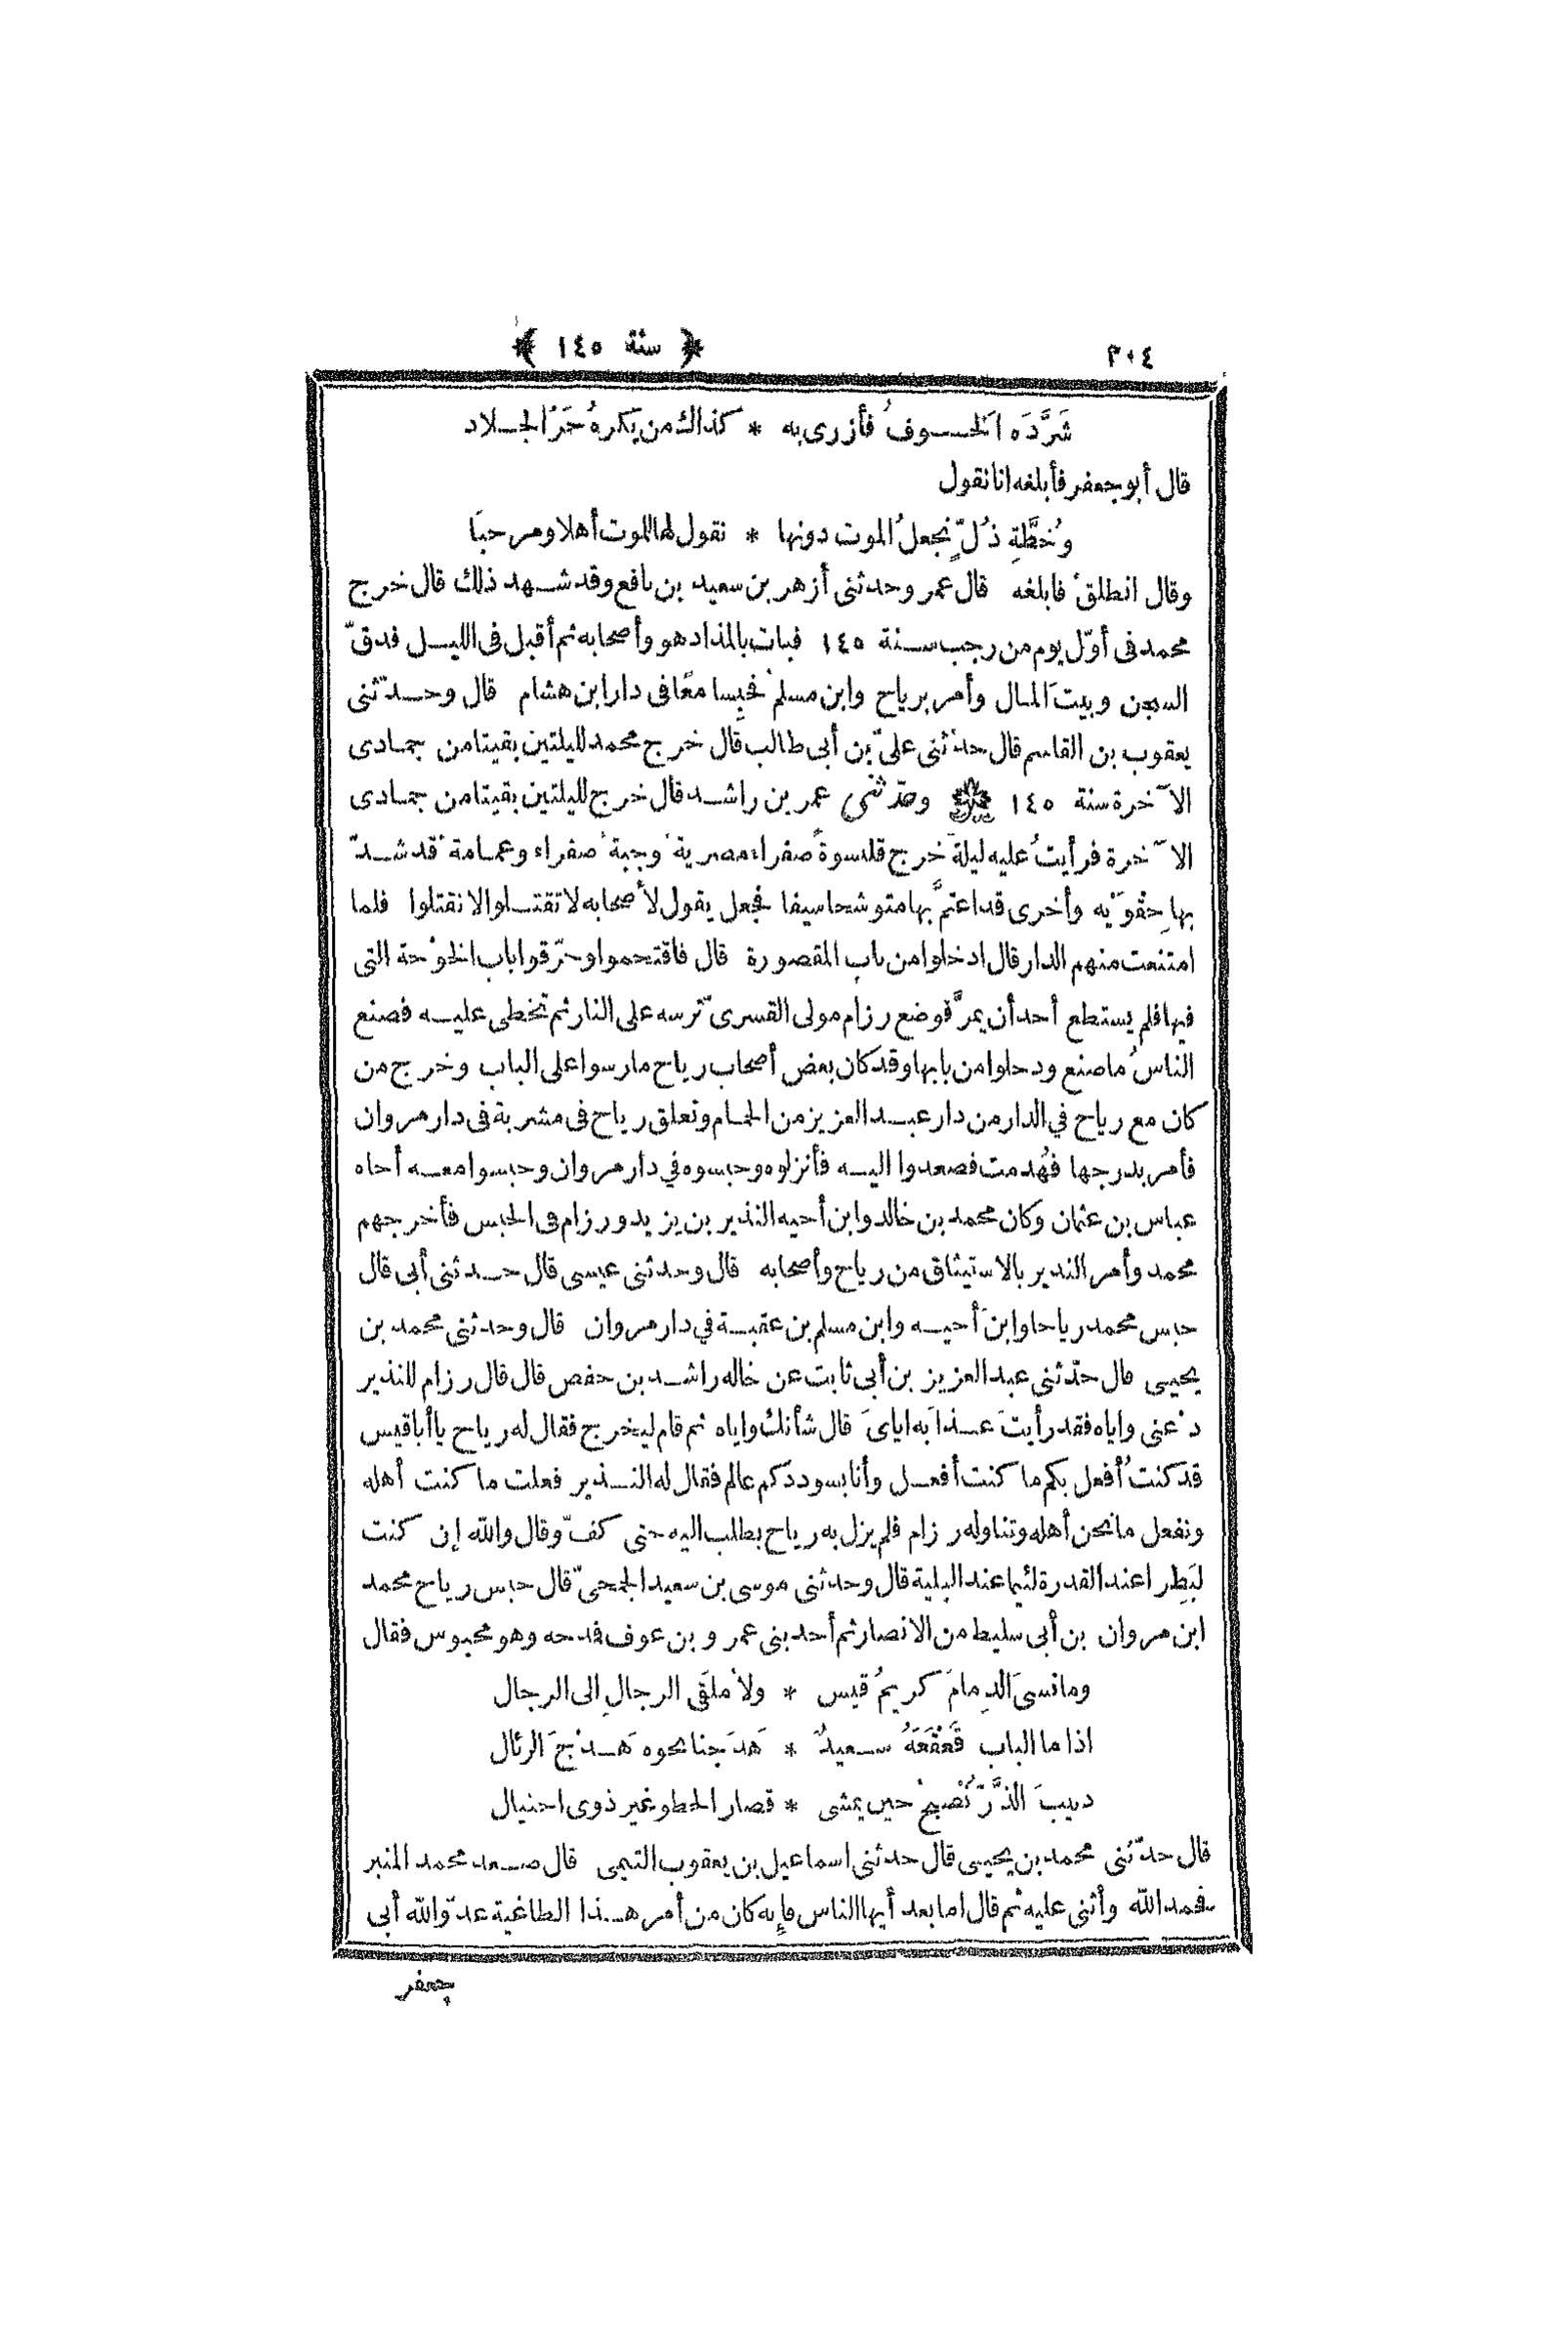 ٣٠٤
﴿ سنة ١٤٥ ﴾
شَرَّدَه الخــوفُ فأزرى به * كذاك من يَكرهُ حَرّ الجــلاد
قال أبو جعفر فأبلغه انا نقول
وخُطَّةِ ذُلّ نجعلُ الموت دونها * نقول لها للموت أهلا ومرحبَا
وقال انطلق فابلغه قال عمر وحدثنى أزهر بن سعيد بن نافع وقد شــهد ذلك قال خرج
محمد فى أوّل يوم من رجب ســنة ١٤٥ فبات بالمذاد هو وأصحابه ثم أقبل فى الليــل فدقّ
السجن وبيتَ المـال وأمر برياح وابن مسلم فحُبِسا معًا فى دار ابن هشام قال وحــدّثنى
يعقوب بن القاسم قال حدثنى علىّ بن أبى طالب قال خرج محمد لليلتين بقيتا من جمـادى
الآخرة سنة ١٤٥ وحدّثنى عمر بن راشــد قال خرج لليلتين بقيتا من جمـادى
الآخرة فرأيتُ عليه ليلة خرج قلنسوةً صفراء مصرية وجبة صفراء وعمـامة قد شــدّ
بها حِقْوَيْه وأخرى قد اعتمَّ بها متوشحا سيفا فجعل يقول لأصحابه لا تقتــلوا لا تقتلوا فلما
امتنعت منهم الدار قال ادخلوا من باب المقصورة قال فاقتحموا وحرّقوا باب الخوْخة التى
فيها فلم يستطع أحد أن يمرَّ فوضع رزام مولى القسرىّ ترسه على النار ثم تخطى عليــه فصنع
الناسُ ما صنع ودخلوا من بابها وقد كان بعض أصحاب رياح مارسوا على الباب وخرج من
كان مع رياح في الدار من دار عبــد العزيز من الحمـام وتعلق رياح فى مشربة فى دار مروان
فأمر بدرجها فهُدمت فصعدوا اليــه فأنزلوه وحبسوه في دار مروان وحبسوا معــه أخاه
عباس بن عثمان وكان محمد بن خالد وابن أخيه النذير بن يزيد ورزام فى الحبس فأخرجهم
محمد وأمر النذير بالاستيثاق من رياح وأصحابه قال وحدثنى عيسى قال حــدثنى أبى قال
حبس محمد رياحا وابنَ أخيــه وابن مسلم بن عقبــة في دار مروان قال وحدثنى محمد بن
يحيى قال حدّثنى عبد العزيز بن أبى ثابت عن خاله راشــد بن حفص قال قال رزام للنذير
دعْنى واياه فقد رأيتَ عــذابَه اياىَ قال شأنك واياه ثم قام ليخرج فقال له رياح يا أبا قيس
قد كنتُ أفعل بكم ما كنت أفعــل وأنا بسوددكم عالم فقال له النــذير فعلت ما كنت أهله
ونفعل ما نحن أهله وتناوله رزام فلم يزل به رياح يطلب اليه حتى كفّ وقال والله إن كنت
لبَطِرا عند القدرة لئيما عند البلية قال وحدثنى موسى بن سعيد الجمحىّ قال حبس رياح محمد
ابن مروان بن أبى سليط من الانصار ثم أحد بنى عمرو بن عوف فمدحه وهو محبوس فقال
وما نسىَ الذِمامَ كريمُ قيس * ولا ملقَى الرجالِ إلى الرجال
اذا ما الباب قَعْقَعَهُ ســعيدٌ * هَدَجنا نحوه هَــدْجَ الرئال
دبيبَ الذَّرّ تُصْبِحُ حين يمشى * قصار الخطو غير ذوى اختيال
قال حدّثنى محمد بن يحيى قال حدثنى اسماعيل بن يعقوب التيمى قال صــعد محمد المنبر
فحمد الله وأثنى عليه ثم قال اما بعد أيها الناس فإنه كان من أمر هــذا الطاغية عدوّ الله أبى
جعفر